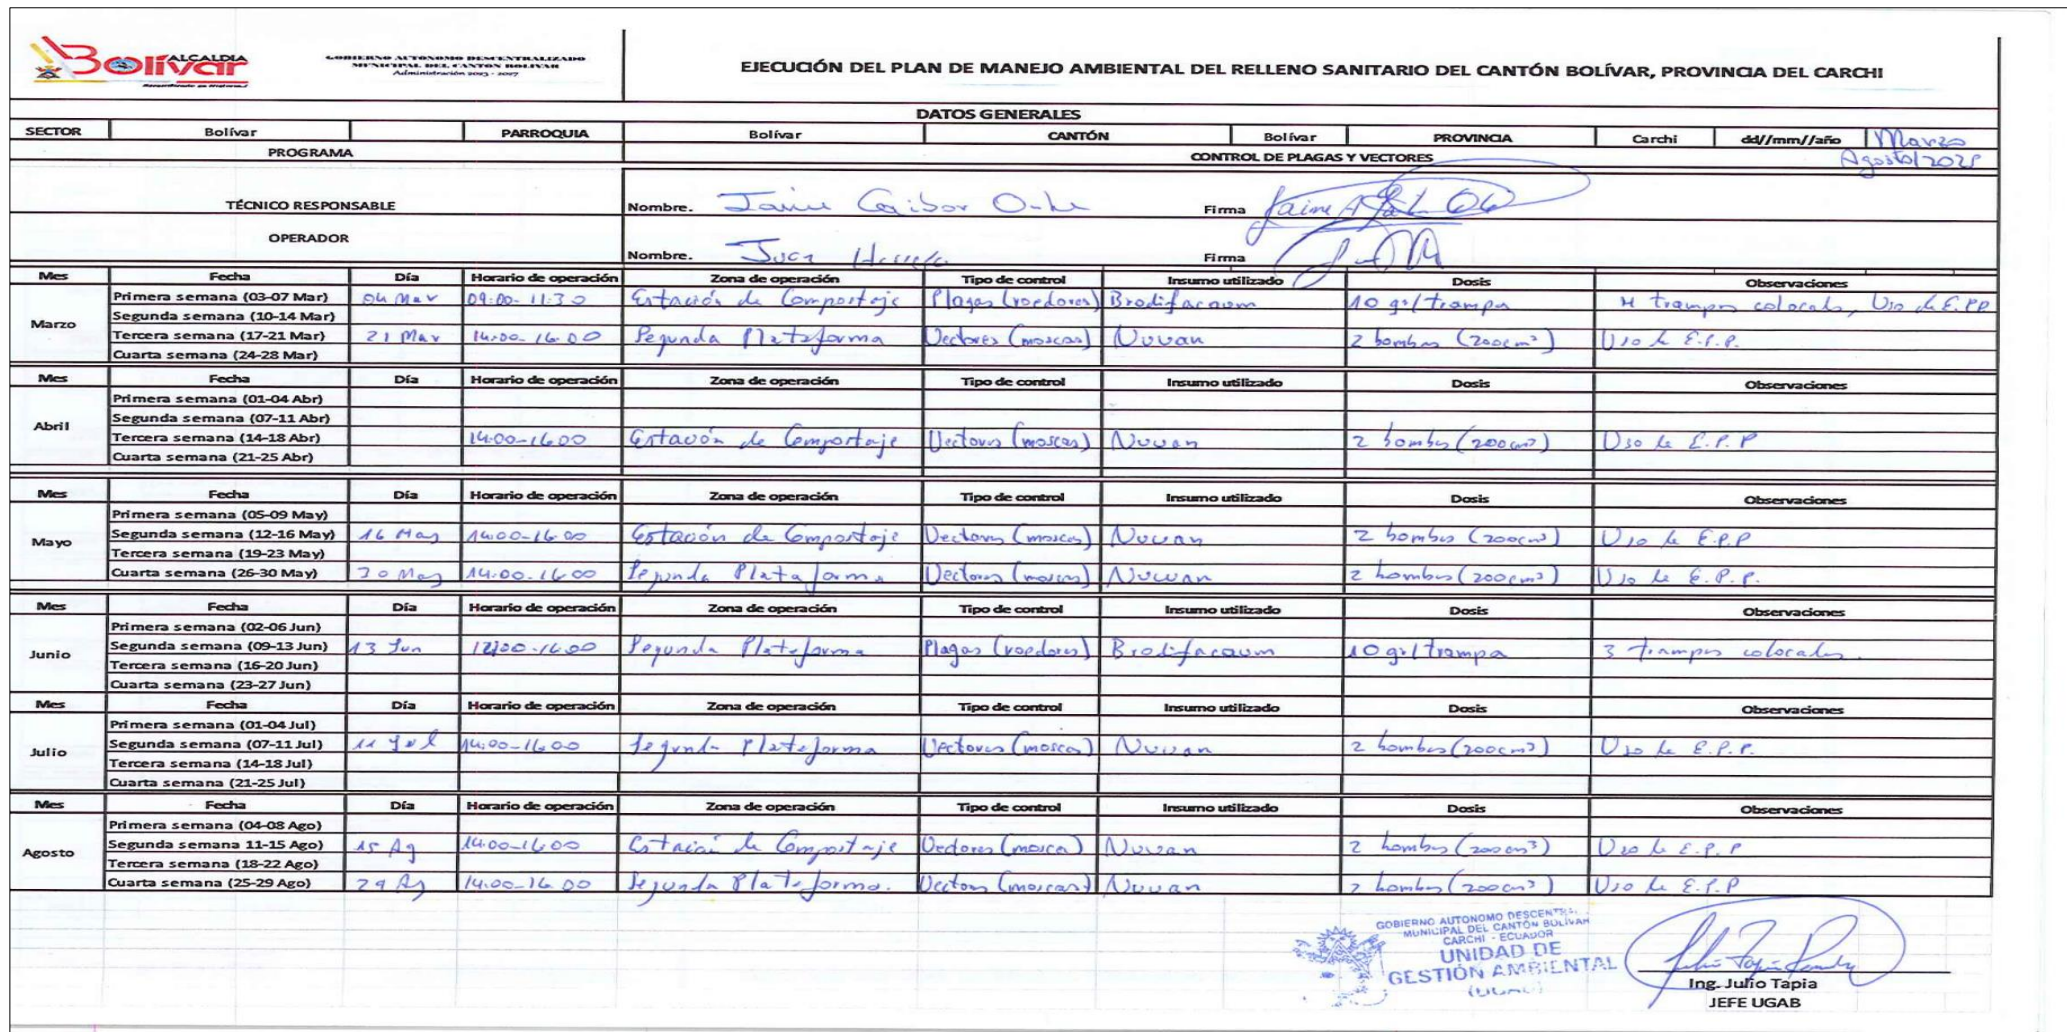 Bolívar ALCALDIA
GOBIERNO AUTÓNOMO DESCENTRALIZADO
MUNICIPAL DEL CANTÓN BOLÍVAR
Administración 2023 - 2027
EJECUCIÓN DEL PLAN DE MANEJO AMBIENTAL DEL RELLENO SANITARIO DEL CANTÓN BOLÍVAR, PROVINCIA DEL CARCHI
DATOS GENERALES
SECTOR Bolívar PARROQUIA Bolívar CANTÓN Bolívar PROVINCIA Carchi dd//mm//año Marzo
PROGRAMA CONTROL DE PLAGAS Y VECTORES Agosto/2025
TÉCNICO RESPONSABLE Nombre. Jaime Firma
OPERADOR Nombre. Juan Firma
Mes Fecha Día Horario de operación Zona de operación Tipo de control Insumo utilizado Dosis Observaciones
Marzo
Primera semana (03-07 Mar) 04 Mar 09:00-11:30 Estación de Compostaje Plagas (roedores) Brodifacoum 10 gr/trampa 4 trampas colocads, Uso de E.PP
Segunda semana (10-14 Mar)
Tercera semana (17-21 Mar) 21 Mar 14:00-16:00 Segunda Plataforma Vectores (moscas) Nuvan 2 bombas (200cm³) Uso de E.P.P.
Cuarta semana (24-28 Mar)
Mes Fecha Día Horario de operación Zona de operación Tipo de control Insumo utilizado Dosis Observaciones
Abril
Primera semana (01-04 Abr)
Segunda semana (07-11 Abr)
Tercera semana (14-18 Abr) 14:00-16:00 Estación de Compostaje Vectores (moscas) Nuvan 2 bombas (200cm³) Uso de E.P.P
Cuarta semana (21-25 Abr)
Mes Fecha Día Horario de operación Zona de operación Tipo de control Insumo utilizado Dosis Observaciones
Mayo
Primera semana (05-09 May)
Segunda semana (12-16 May) 16 May 14:00-16:00 Estación de Compostaje Vectores (moscas) Nuvan 2 bombas (200cm³) Uso de E.P.P
Tercera semana (19-23 May)
Cuarta semana (26-30 May) 30 May 14:00-16:00 Segunda Plataforma Vectores (moscas) Nuvan 2 bombas (200cm³) Uso de E.P.P.
Mes Fecha Día Horario de operación Zona de operación Tipo de control Insumo utilizado Dosis Observaciones
Junio
Primera semana (02-06 Jun)
Segunda semana (09-13 Jun) 13 Jun -16:00 Segunda Plataforma Plagas (roedores) Brodifacoum 10 gr/trampa 3 trampas colocadas.
Tercera semana (16-20 Jun)
Cuarta semana (23-27 Jun)
Mes Fecha Día Horario de operación Zona de operación Tipo de control Insumo utilizado Dosis Observaciones
Julio
Primera semana (01-04 Jul)
Segunda semana (07-11 Jul) 11 Jul 14:00-16:00 Segunda Plataforma Vectores (moscas) Nuvan 2 bombas (200cm³) Uso de E.P.P.
Tercera semana (14-18 Jul)
Cuarta semana (21-25 Jul)
Mes Fecha Día Horario de operación Zona de operación Tipo de control Insumo utilizado Dosis Observaciones
Agosto
Primera semana (04-08 Ago)
Segunda semana 11-15 Ago) 15 Ag 14:00-16:00 Estación de Compostaje Vectores (mosca) Nuvan 2 bombas (200cm³) Uso de E.P.P
Tercera semana (18-22 Ago)
Cuarta semana (25-29 Ago) 29 Ag 14:00-16:00 Segunda Plataforma. Vectores (moscas) Nuvan 2 bombas (200cm³) Uso de E.P.P
GOBIERNO AUTONOMO DESCENTRAL
MUNICIPAL DEL CANTÓN BOLIVAR
CARCHI - ECUADOR
UNIDAD DE
GESTIÓN AMBIENTAL
Ing. Julio Tapia
JEFE UGAB